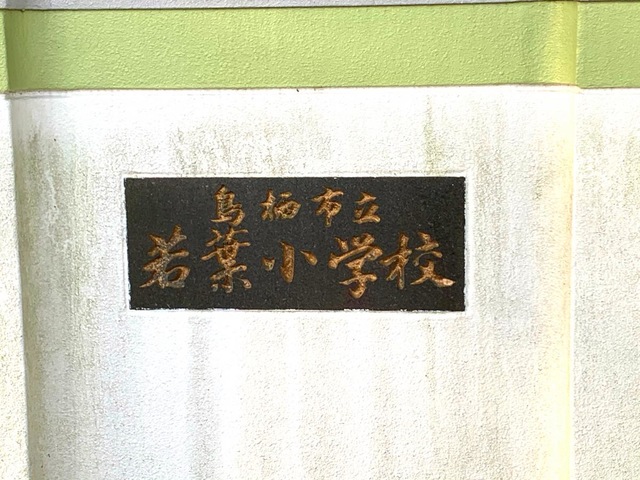 鳥栖市立
若葉小学校